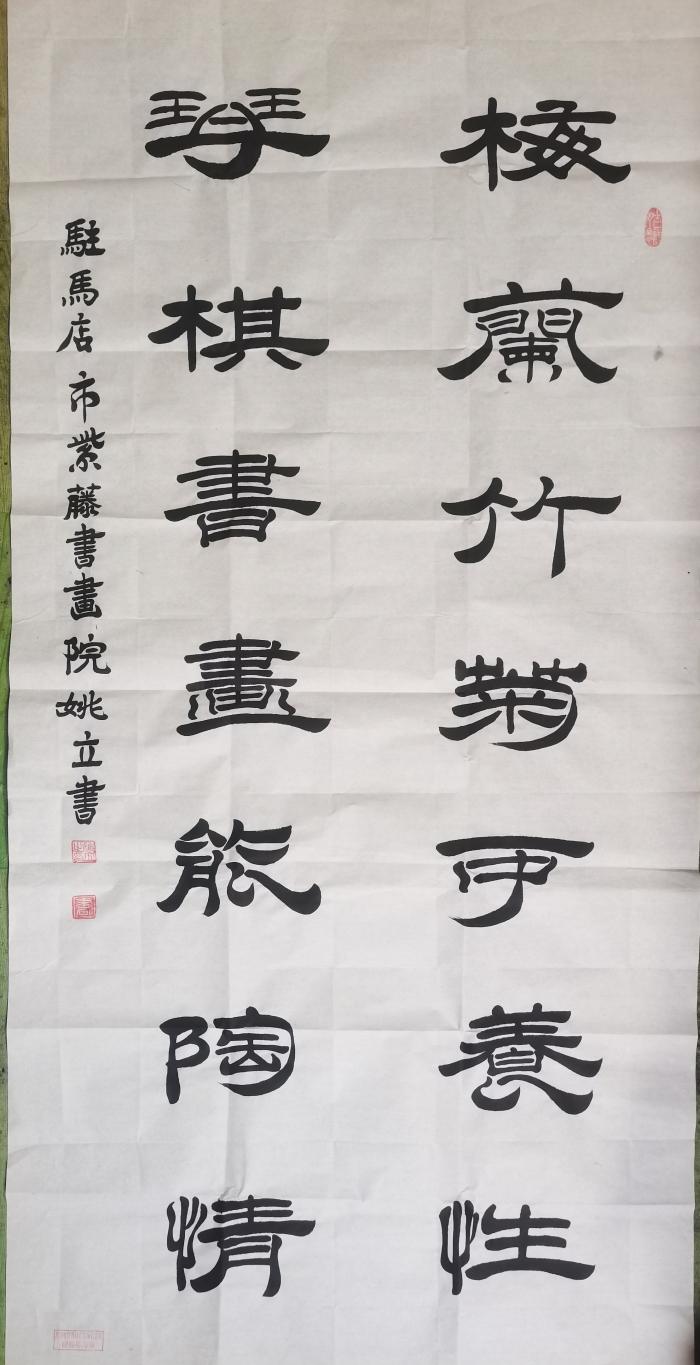 梅蘭竹菊可養性
琴棋書畫能陶情
駐馬店市紫藤書畫院姚立書